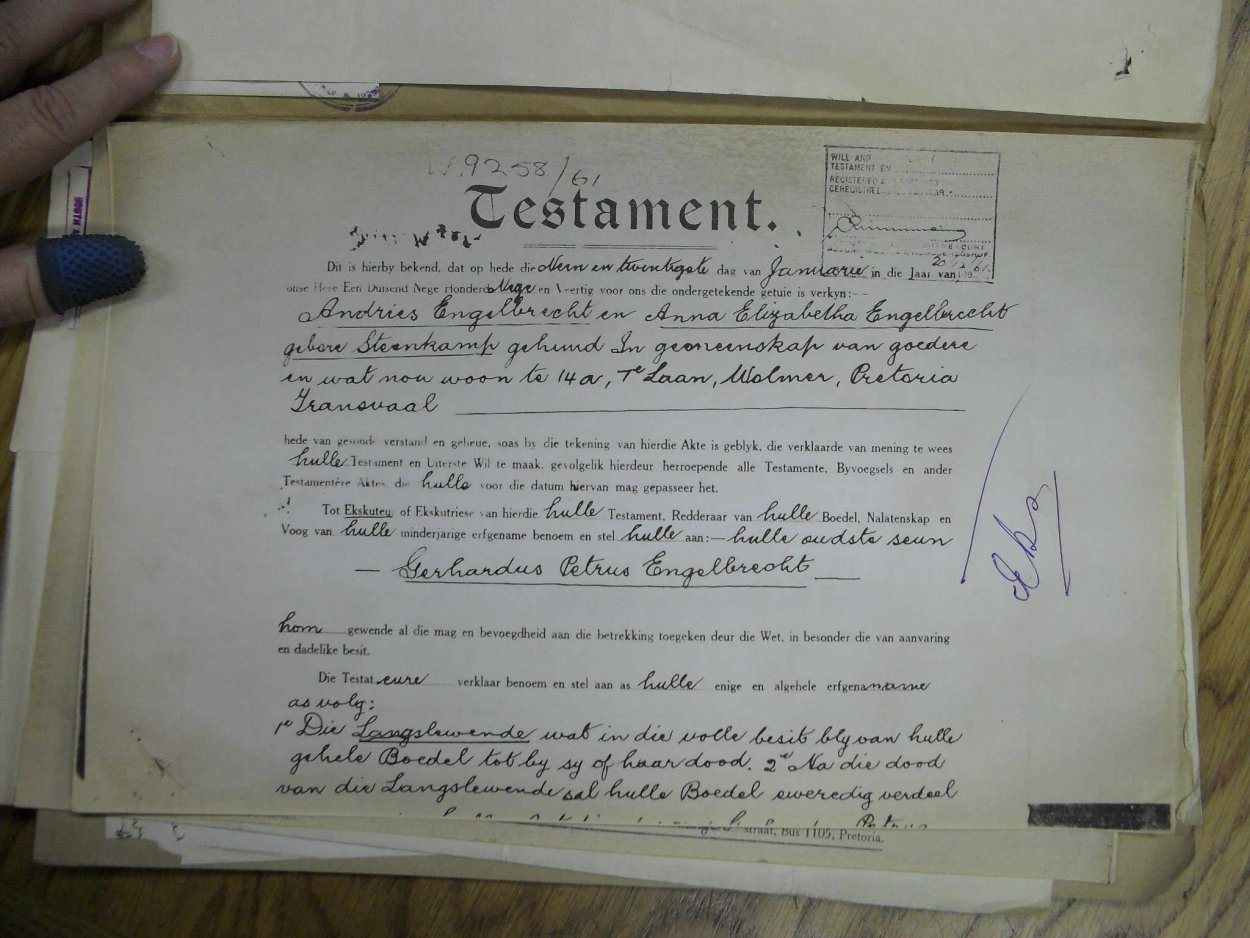 W. 9258/61
Testament.
WILL AND
TESTAMENT EN
REGISTERED
GEREGISTREER
Dit is hierby bekend, dat op hede die Neen en twentigste dag van Januarie in die Jaar van
onse Here Een Duisend Nege Honderd Nege en Veertig voor ons die ondergetekende getuie is verkyn:--
Andries Engelbrecht en Anna Elizabetha Engelbrecht
gebore Steenkamp gehuud In gemeenskap van goedere
en wat nou woon te 14a, 7e Laan, Wolmer, Pretoria
Transvaal
hede van gesonde verstand en geheue, soas by die tekening van hierdie Akte is geblyk, die verklaarde van mening te wees
hulle Testament en Uiterste Wil te maak, gevolgelik hierdeur herroepende alle Testamente, Byvoegsels en ander
Testamentêre Aktes die hulle voor die datum hiervan mag gepasseer het.
Tot Ekskuteu of Ekskutriese van hierdie hulle Testament, Redderaar van hulle Boedel, Nalatenskap en
Voog van hulle minderjarige erfgename benoem en stel hulle aan:— hulle oudste seun
— Gerhardus Petrus Engelbrecht —
hom gewende al die mag en bevoegdheid aan die betrekking toegeken deur die Wet, in besonder die van aanvaring
en dadelike besit.
Die Testateure verklaar benoem en stel aan as hulle enige en algehele erfgename
as volg:
1e Die Langslewende wat in die volle besit bly van hulle
gehele Boedel tot by sy of haar dood. 2e Na die dood
van die Langslewende sal hulle Boedel eweredig verdeel
straat, Bus 1105, Pretoria.